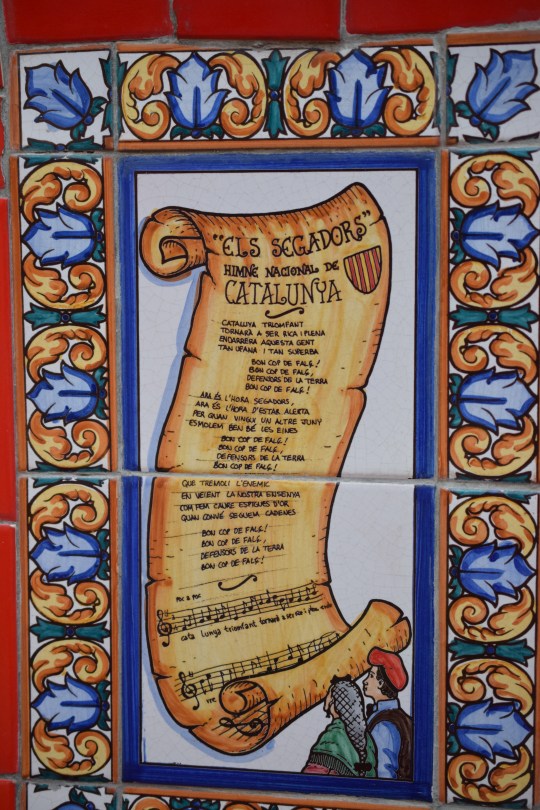 "ELS SEGADORS"
HIMNE NACIONAL DE
CATALUNYA
CATALUYA TRIOMFANT
TORNARÀ A SER RICA I PLENA
ENDARRERA AQUESTA GENT
TAN UFANA I TAN SUPERBA
BON COP DE FALÇ!
BON COP DE FALÇ,
DEFENSORS DE LA TERRA
BON COP DE FALÇ!
ARA ÉS L'HORA SEGADORS,
ARA ÉS L'HORA D'ESTAR ALERTA
PER QUAN VINGUI UN ALTRE JUNY
ESMOLEM BEN BÉ LES EINES
BON COP DE FALÇ!
BON COP DE FALÇ,
DEFENSORS DE LA TERRA
BON COP DE FALÇ!
QUE TREMOLI L'ENEMIC
EN VEIENT LA NOSTRA ENSENYA
COM FEM CAURE ESPIGUES D'OR
QUAN CONVÉ SEGUEM CADENES
BON COP DE FALÇ!
BON COP DE FALÇ,
DEFENSORS DE LA TERRA
BON COP DE FALÇ!
POC A POC
cata lunya triomfant tornarà a ser rica i plena